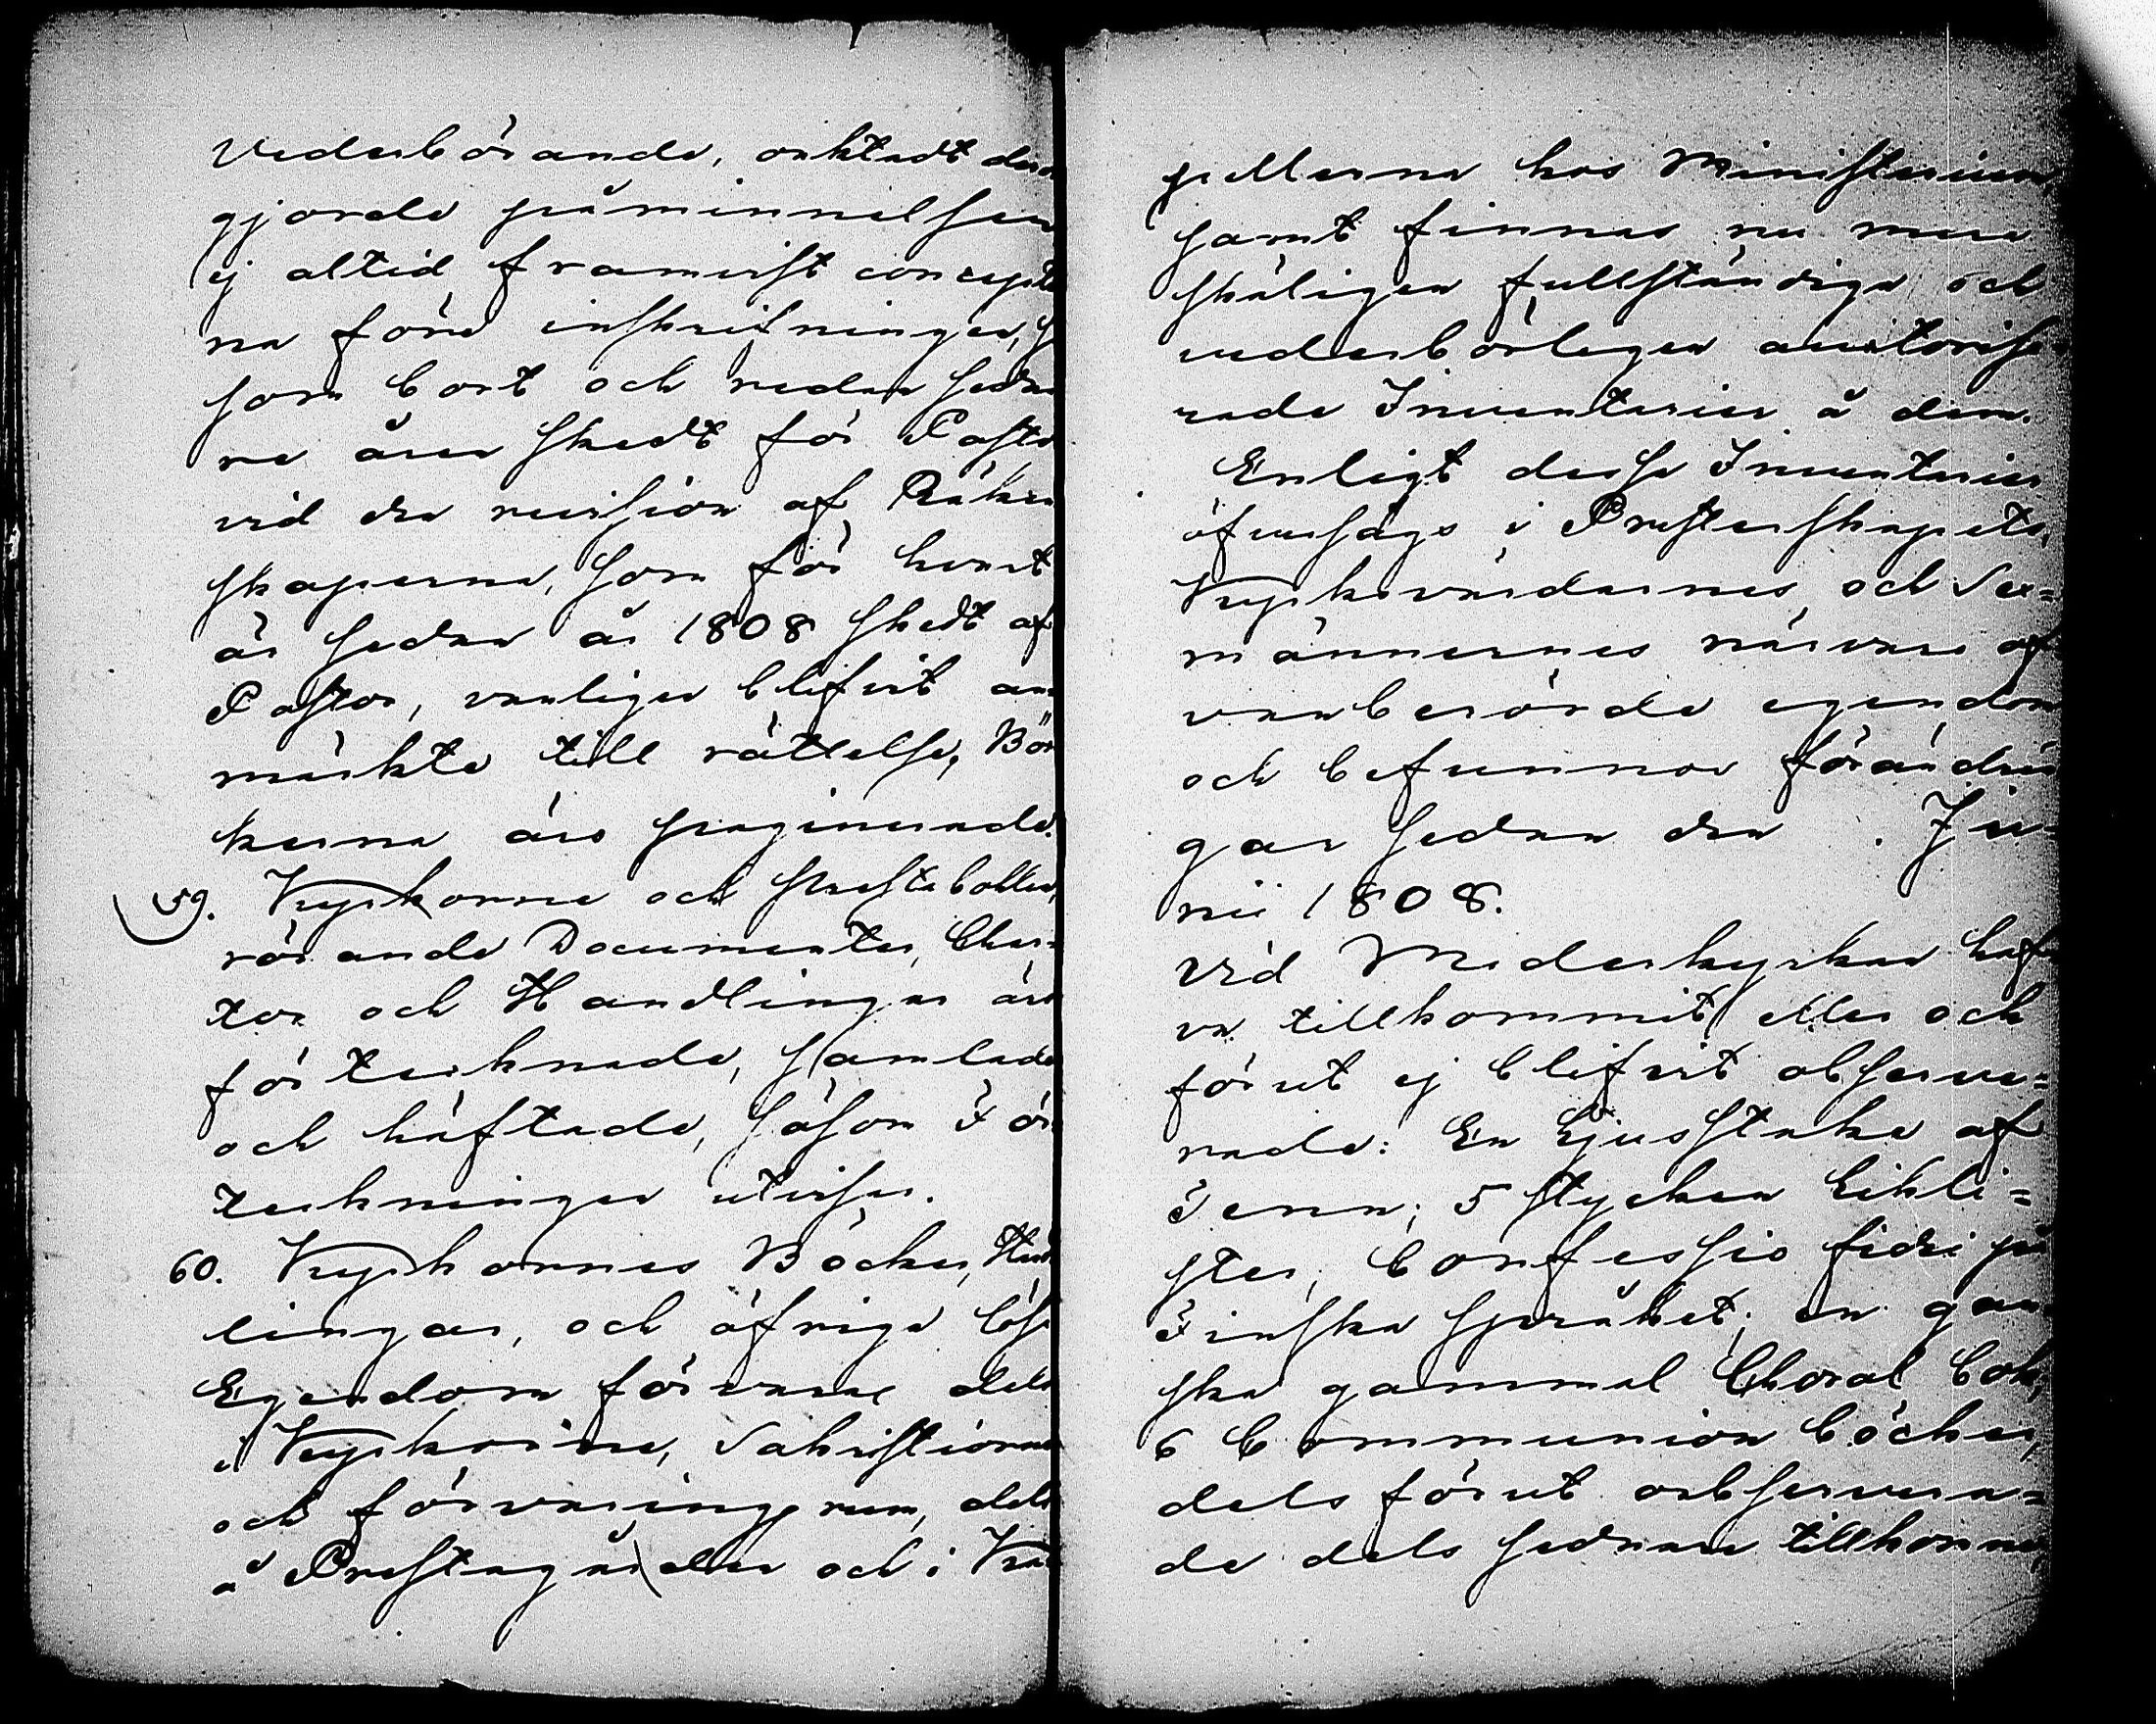 Vederbörande, oaktadt der
gjorde påminnelser,
ej altid framvist concepte
na före inskrifningen,
som bort och redan sedna
re åren skedt för Pasto
vid den revision af Räken
skaperne, som för hvart
år sedan år 1808 skedt af
Pastor, vanligen blifvit an-
märkte till rättelse, Böc
kerna äro paginerade.
59. Kyrkorne och Prestabohlen,
rörande Documenter, Char-
tor och Handlingar äro
förtecknade, samlade
och häftade, såsom För
teckningen utviser.
60. Kyrkornes Böcker, Hand
lingar, och öfriga lösa
Egendom förvaras dels
i Kyrkorne, Sakristiorna
och förvaringsrum, dels
å Prestagården och i Ka
pellerna hos Ministerium
samt finnas nu mera
skäligen fullständiga och
vederbörligen auctorise
rade Inventarier å dem.
Enligt desse Inventarier
öfversågs i Presterskapets,
Kyrkovärdarnes och Sex=
männernes närvaro of
vanberörde egendom
och befunnos förändrin
gar sedan den . Ju-
nii 1808.
Vid Moderkyrkan haf
va tillkommit eller och
förut ej blifvit observe=
rade: En Ljusstake af
Tenn; 5 stycken Likli=
ster; Confessio fidei på
Finska språket; en gan
ska gammal Choral bok,
6 Communion böcker,
dels förut observera=
de dels sednare tillkomne,